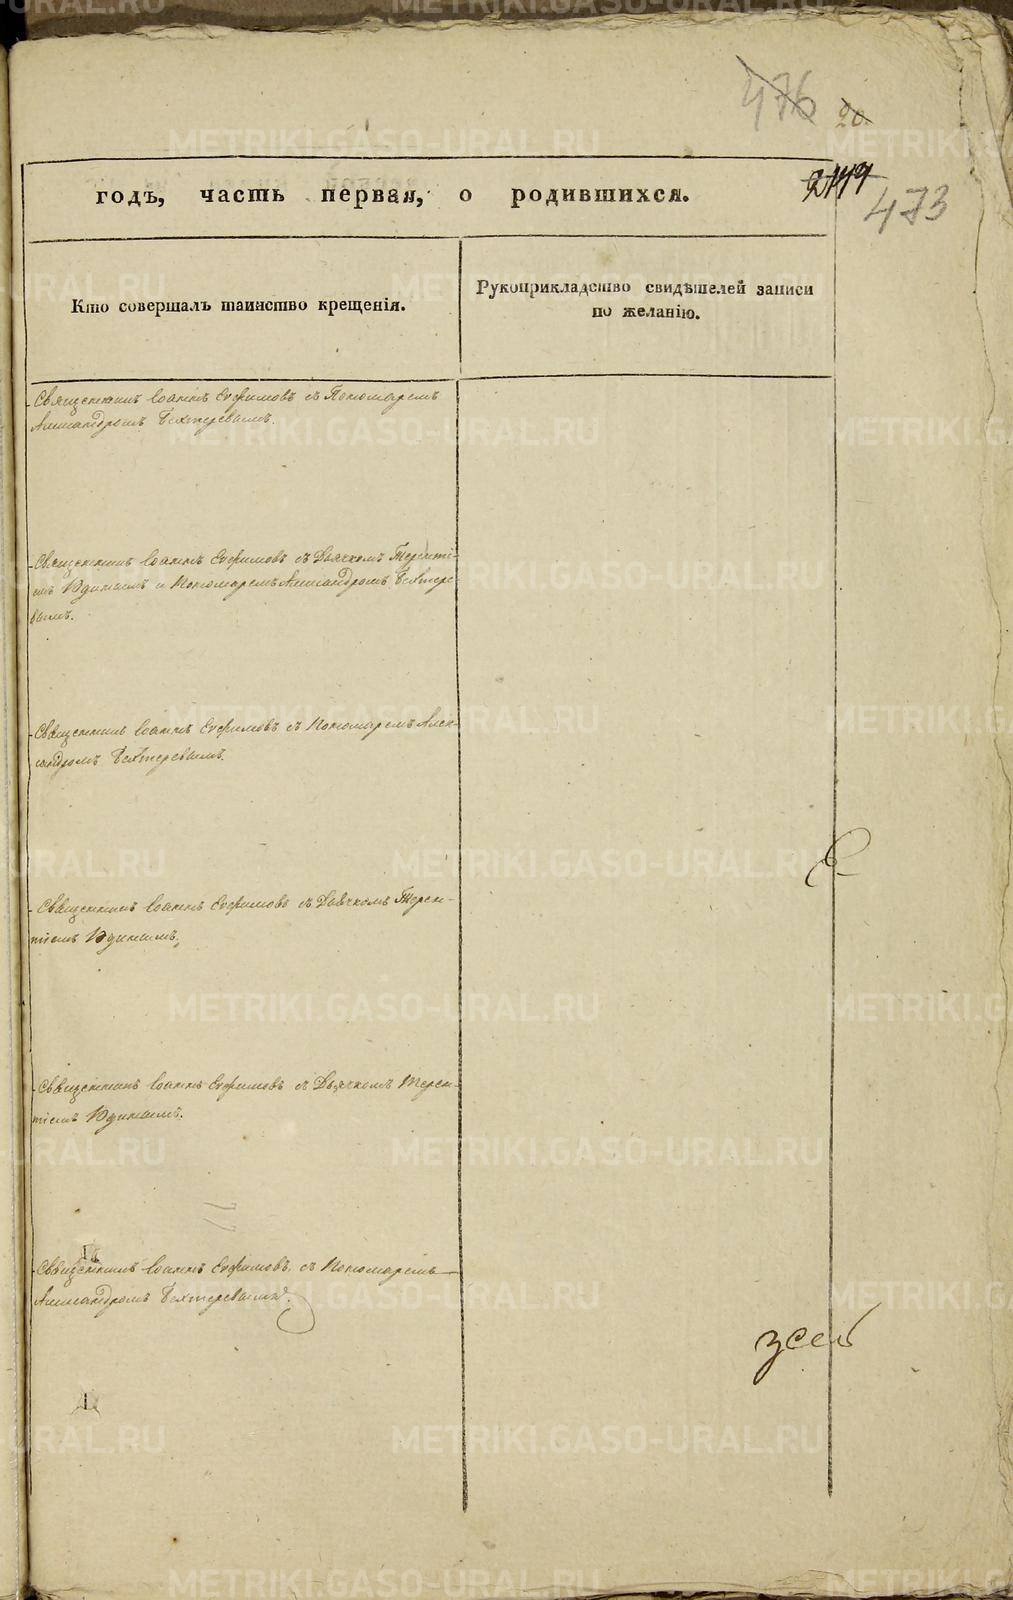 476
20
2144
473
годъ, часть первая, о родившихся.
Кто совершалъ таинство крещенія.
Рукоприкладство свидѣтелей записи
по желанію.
Священникъ Іоаннъ Ефимовъ съ Пономаремъ
Александромъ Бехтеревымъ.
Священникъ Іоаннъ Ефимовъ съ Дьячкомъ Теренті-
емъ и Пономаремъ Александромъ Бехтере-
вымъ.
Священникъ Іоаннъ Ефимовъ съ Пономаремъ Алек-
сандромъ Бехтеревымъ.
Священникъ Іоаннъ Ефимовъ съ Дьячкомъ Терен-
тіемъ
Священникъ Іоаннъ Ефимовъ съ Дьячкомъ Терен-
тіемъ
Священникъ Іоаннъ Ефимовъ съ Пономаремъ
Александромъ Бехтеревымъ.
METRIKI.GASO-URAL.RU